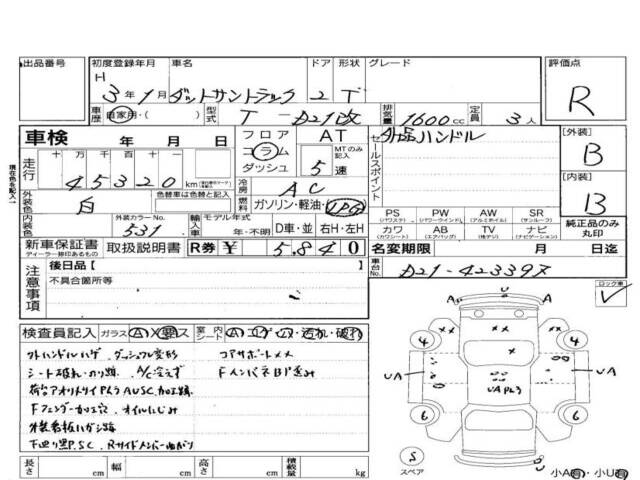 出品番号 初度登録年月 車名 ドア 形状 グレード 評価点
H 3年 1月 ダットサントラック 2 T R
車歴 自家用・( ) 型式 T-D21改 排気量 1600cc 定員 3人
車検 年 月 日 フロア コラム ダッシュ AT MTのみ記入 5速 セールスポイント 社外品ハンドル [外装] B
走行 十万千百十一 45320 km
現在色を記入
外装色 白 色替車は色替と記入 冷房 AC 燃料 ガソリン・軽油・LPG [内装] B
内装色 外装カラーNo. 531 輸入車 モデル年式 年・不明 D車・並 右H・左H
PS (パワステ) PW (パワーウインド) AW (アルミホイル) SR (サンルーフ) 純正品のみ丸印
カワ (カワシート) AB (エアバッグ) TV (テレビ) ナビ (ナビゲーション)
新車保証書 ディーラー捺印あるもの 取扱説明書 R券 ¥ 5,840 名変期限 月 日迄
注意事項 後日品【 】 車台No. D21-42339X
不具合箇所等 ロック車
検査員記入 ガラス A X ス 室内 シート A コゲ ス 汚れ 破れ
外ハンドルハゲ、ダッシュワレ変形 コアサポートXX
シート破れ・のり跡 A/C冷えず FインパネBP歪み
荷台アオリ
Fフェンダー加工穴 オイルにじみ
看板ハガシ跡
下廻り黒P.S.C. Rサイドメンバー曲がり
長さ cm 幅 cm 高さ cm 積載量 kg
U
A A
4 4
UA UA
UAPみ3
6 6
S
スペア
小A有・小U有